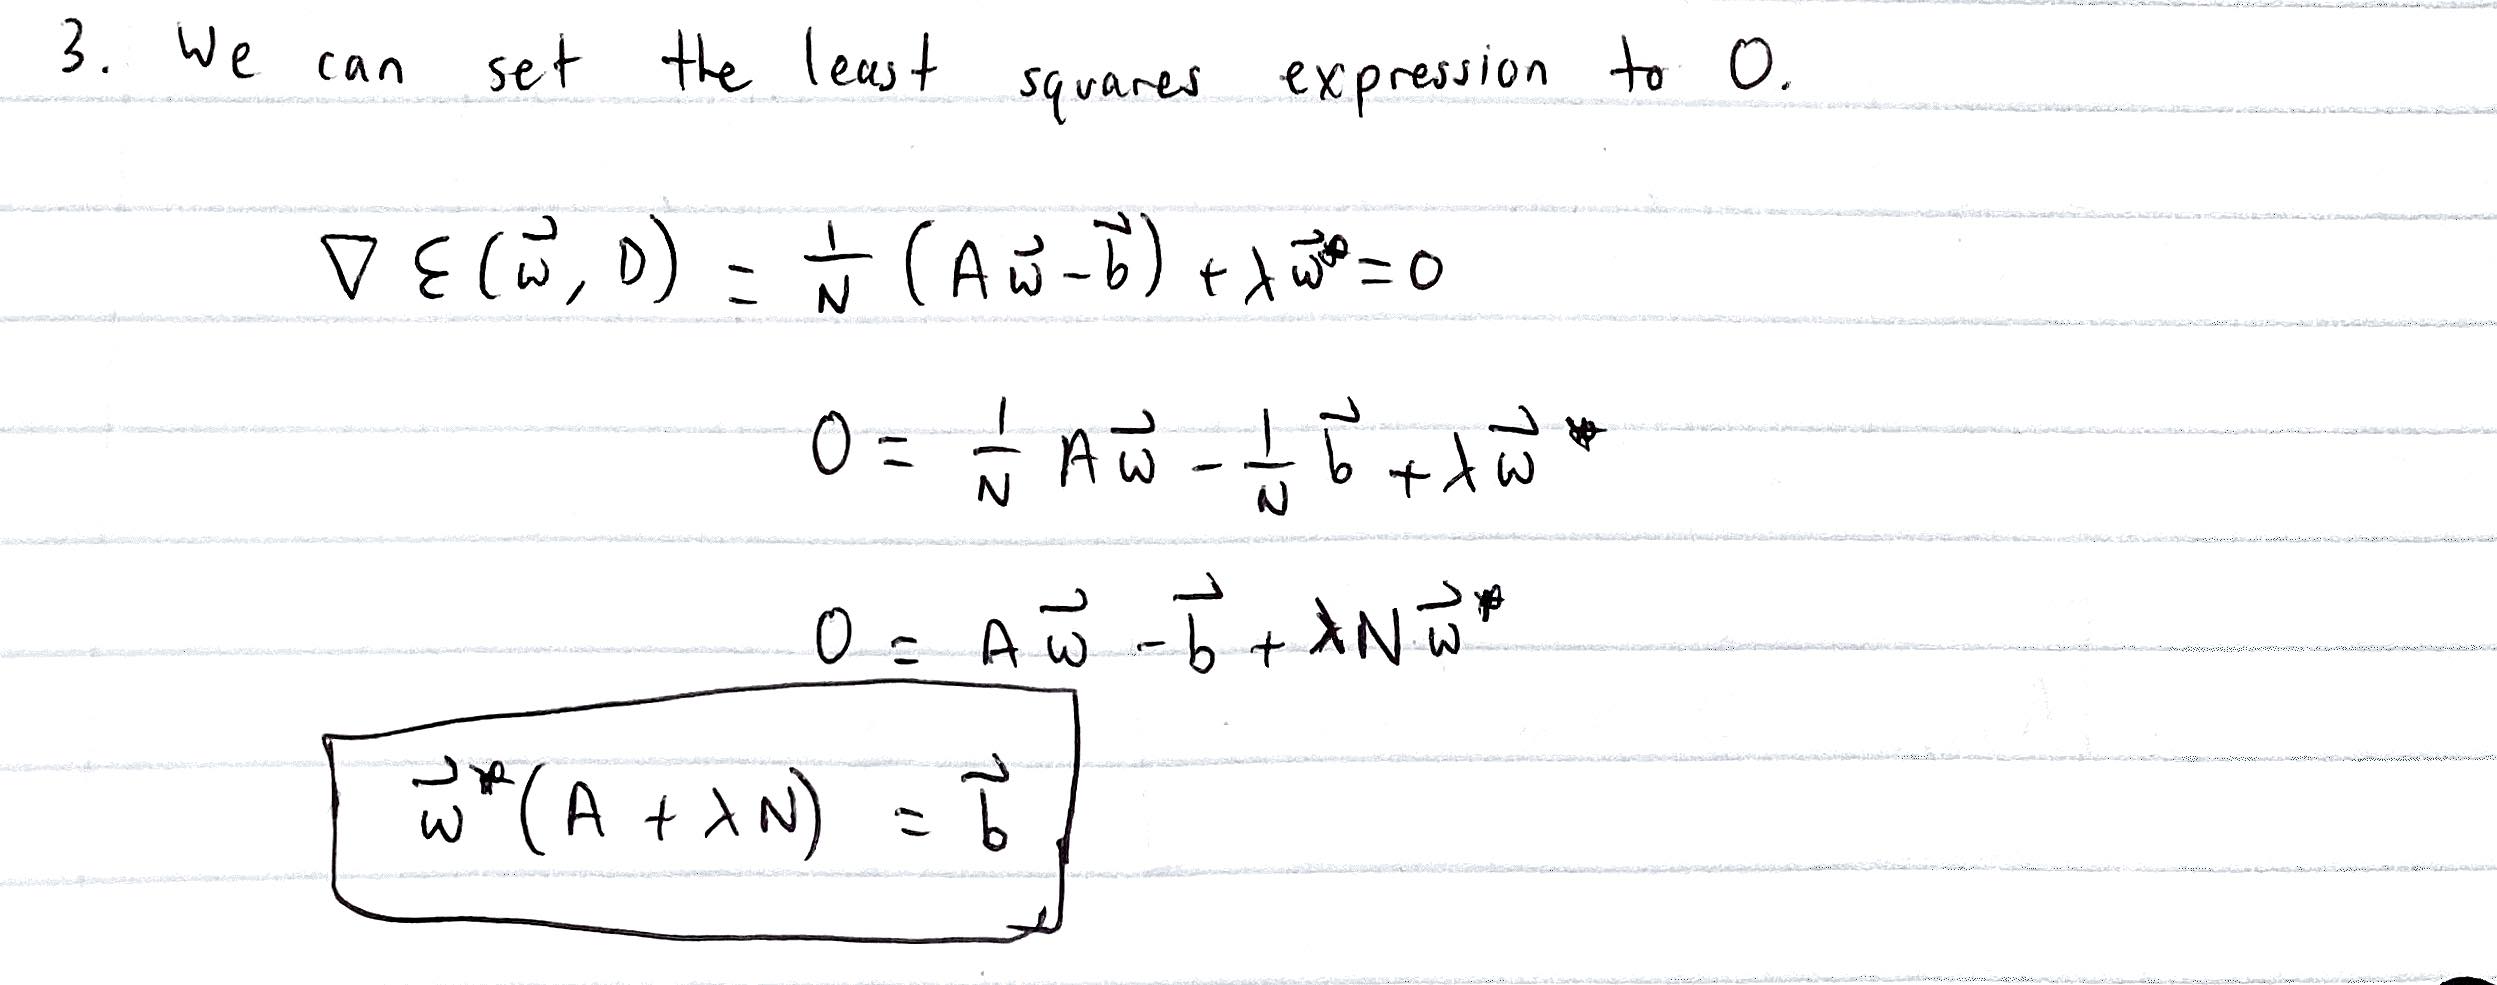 3. We can set the least squares expression to 0.
∇ ℰ(w⃗, D) = 1/N (Aw⃗ - b⃗) + λw⃗* = 0
0 = 1/N Aw⃗ - 1/N b⃗ + λw⃗*
0 = Aw⃗ - b⃗ + λNw⃗*
w⃗*(A + λN) = b⃗